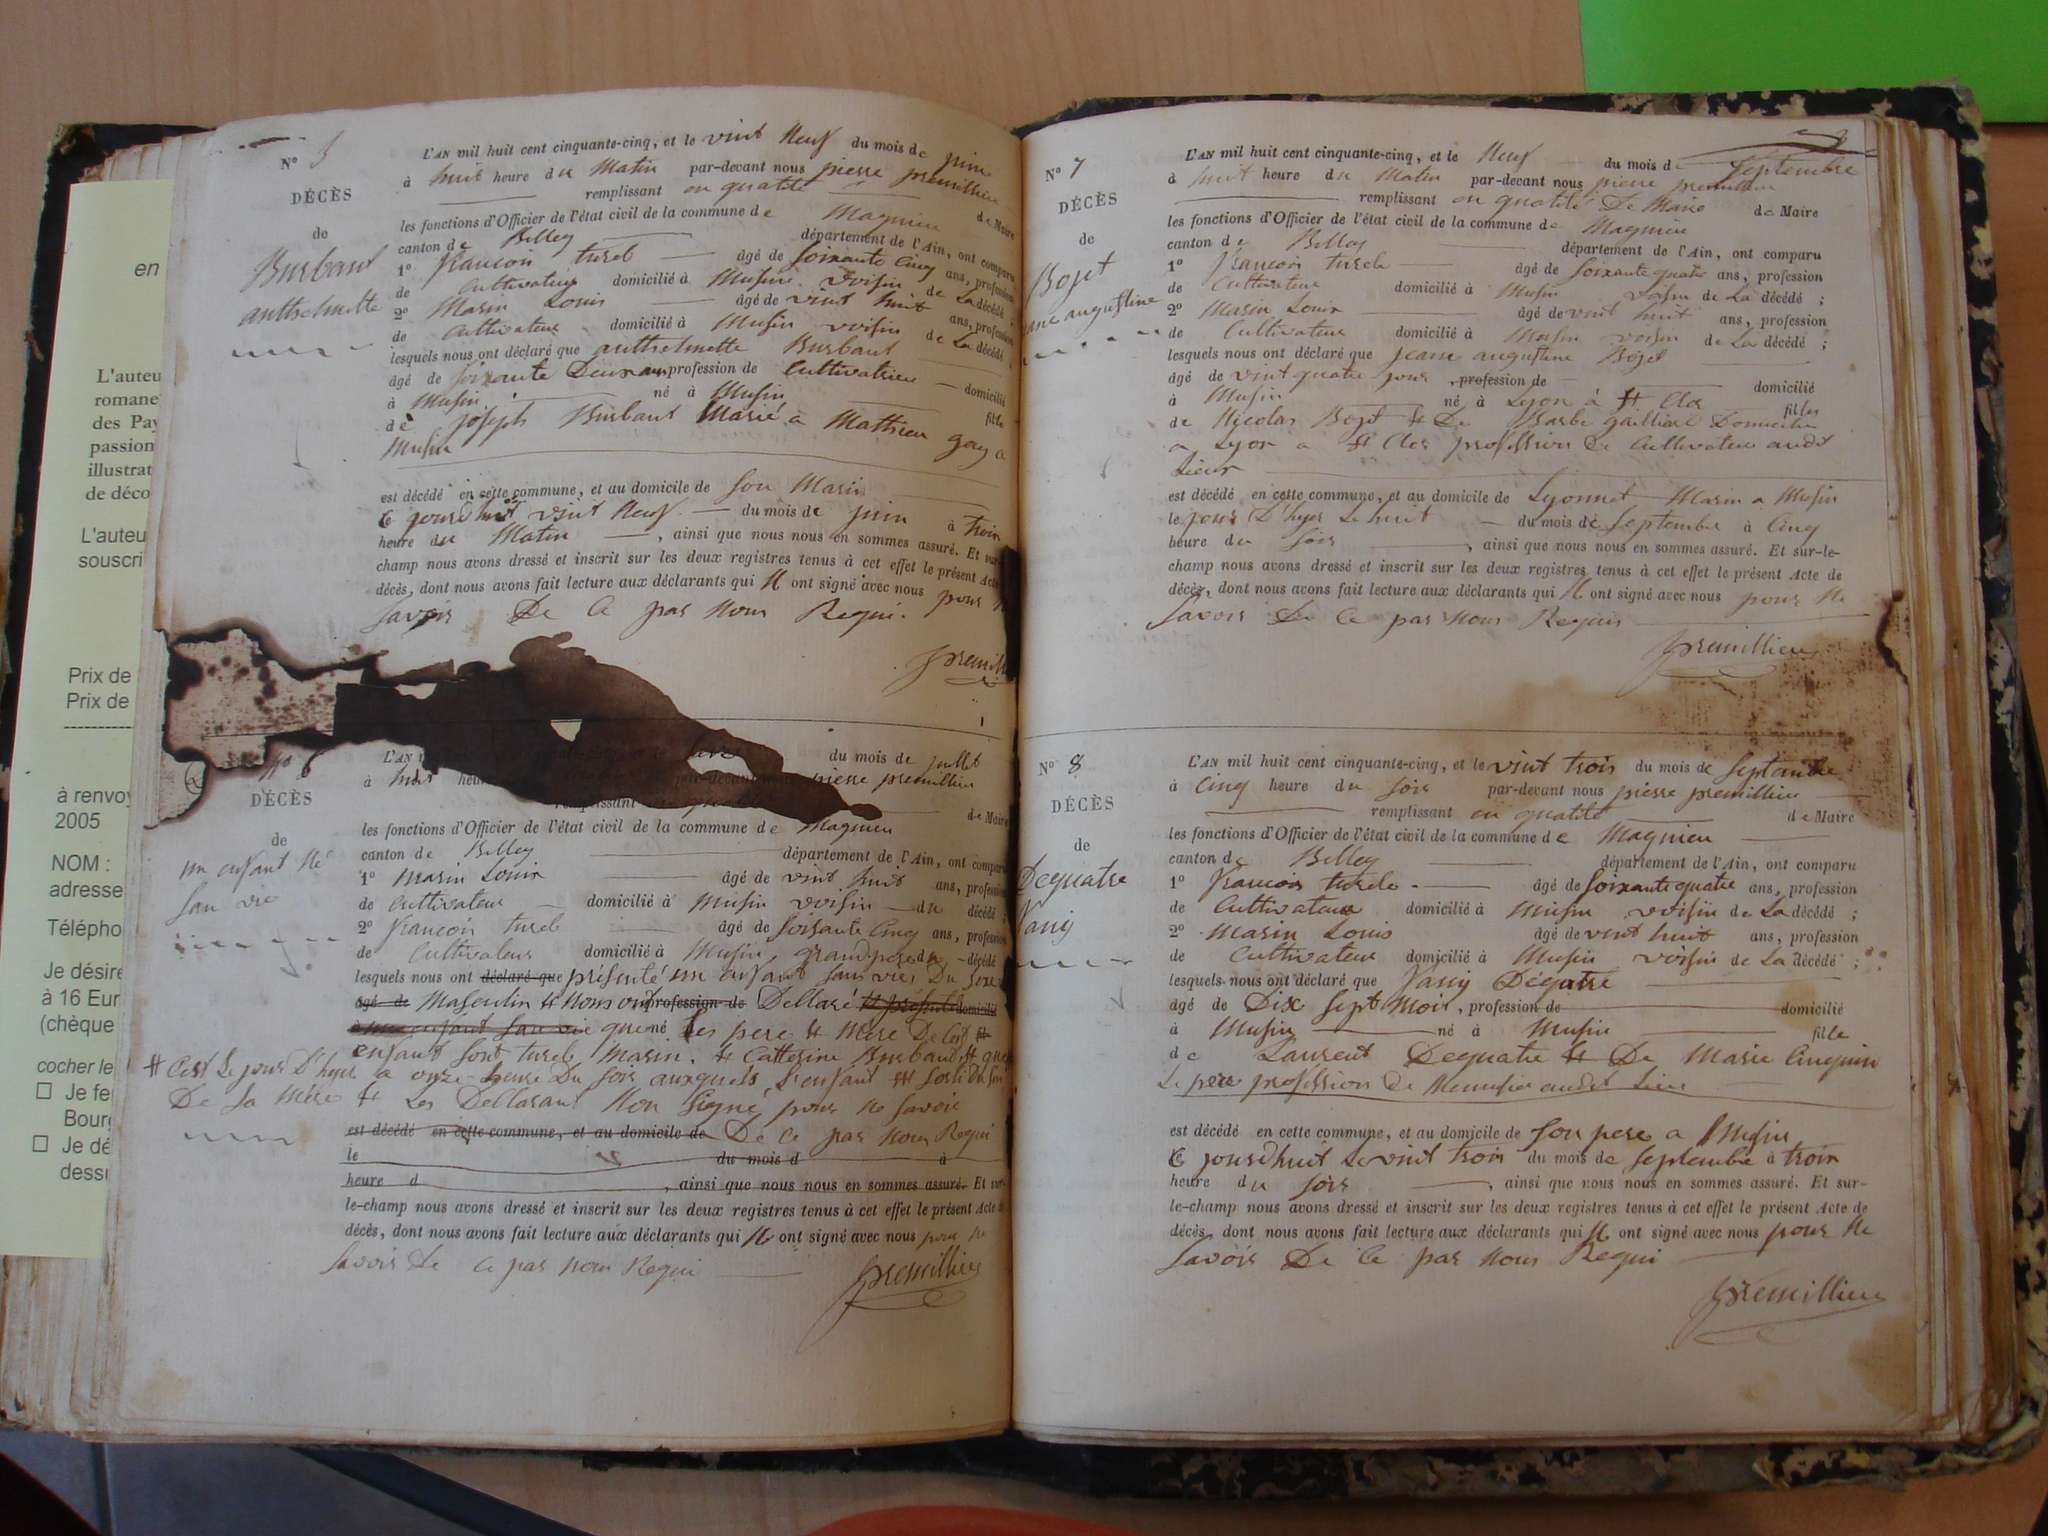 en
L'auteu
romane
des Pay
passion
illustrat
de déco
L'auteu
souscri
Prix de
Prix de
à renvoy
2005
NOM :
adresse
Télépho
Je désire
à 16 Eur
(chèque
cocher le
Je fe
Bourg
Je dé
dess
N° 5
DÉCÈS
de
Burbant
anthelmette
L'AN mil huit cent cinquante-cinq, et le vint neuf du mois de juin
à huit heure du Matin par-devant nous pierre premillieu
remplissant en qualité de Maire
les fonctions d'Officier de l'état civil de la commune de Magnieu
canton de Belley département de l'Ain, ont comparu
1° françois turel âgé de soixante cinq ans, profession
de Cultivateur domicilié à Musin voisin de La décédé ;
2° Marin Louis âgé de vint huit ans, profession
de Cultivateur domicilié à Musin voisin de La décédé
lesquels nous ont déclaré que anthelmette Burbant
âgé de soixante Deux ans profession de Cultivatrice domicilié
à Musin né à Musin fille
de joseph Burbant Marié à Mathieu gay a
Musin
est décédé en cette commune, et au domicile de son Marin
Ce jourdhuit vint neuf du mois de juin à trois
heure du Matin , ainsi que nous nous en sommes assuré. Et sur-
champ nous avons dressé et inscrit sur les deux registres tenus à cet effet le présent Acte
décès, dont nous avons fait lecture aux déclarants qui N ont signé avec nous pour
savoir De Ce pas nous Requi.
premilli
N° 6
DÉCÈS
de
un enfant né
san vie
L'AN du mois de juillet
à huit heu par-devant pierre premillieu
remplissant de Maire
les fonctions d'Officier de l'état civil de la commune de Magnieu
canton de Belley département de l'Ain, ont comparu
1° Marin Louis âgé de vint huit ans, profession
de Cultivateur domicilié à Musin voisin du décédé ;
2° françois turel âgé de soixante Cinq ans, profession
de Cultivateur domicilié à Musin grand pere du décédé
lesquels nous ont déclaré que présenté un enfant san vies Du sexe
âgé de Masculin et nous ont profession de Déllaré et présenté domicilié
à un enfant san vie que né Les pere et mere De Cest
enfant sont turel Marin. et Catterine Burbant et que
# Cest Le jour D'hyer a onze heure Du soir auxquels L'enfant est sorti Du sein
De sa Mére et Les Dellarant Non signé pour ne savoir
est décédé en cette commune, et au domicile de De Ce pas nous Requi
le du mois d à
heure d , ainsi que nous nous en sommes assuré. Et sur-
le-champ nous avons dressé et inscrit sur les deux registres tenus à cet effet le présent Acte de
décès, dont nous avons fait lecture aux déclarants qui N ont signé avec nous pour ne
savoir De Ce pas nous Requi
premillieu
N° 7
DÉCÈS
de
Bozet
jane augustine
L'AN mil huit cent cinquante-cinq, et le Neuf du mois de Septembre
à huit heure du Matin par-devant nous pierre premillieu
remplissant en qualité De Maire de Maire
les fonctions d'Officier de l'état civil de la commune de Magnieu
canton de Belley département de l'Ain, ont comparu
1° françois turele âgé de soixante quatre ans, profession
de Cultivateur domicilié à Musin voisin de La décédé ;
2° Marin Louis âgé de vint huit ans, profession
de Cultivateur domicilié à Musin voisin de La décédé ;
lesquels nous ont déclaré que jeane augustine Bozet
âgé de vint quatre jour , profession de domicilié
à Musin né à Lyon à fille
de Nicolas Bozet et De Barbe gaillard Domicilié
a Lyon a profession De Cultivateur audit
Lieux
est décédé en cette commune, et au domicile de Lyonnet Marin a Musin
le jour D'hyer Le huit du mois de Septembre à Cinq
heure du soir , ainsi que nous nous en sommes assuré. Et sur-le-
champ nous avons dressé et inscrit sur les deux registres tenus à cet effet le présent Acte de
décès, dont nous avons fait lecture aux déclarants qui N ont signé avec nous pour ne
savoir De Ce pas nous Requis
premillieu
N° 8
DÉCÈS
de
Dequatre
fany
L'AN mil huit cent cinquante-cinq, et le vint trois du mois de Septembre
à Cinq heure du soir par-devant nous pierre premillieu
remplissant en qualité de Maire
les fonctions d'Officier de l'état civil de la commune de Magnieu
canton de Belley département de l'Ain, ont comparu
1° françois turele âgé de soixante quatre ans, profession
de Cultivateur domicilié à Musin voisin de La décédé ;
2° Marin Louis âgé de vint huit ans, profession
de Cultivateur domicilié à Musin voisin de La décédé ;
lesquels nous ont déclaré que fany Déquatre
âgé de Dix sept mois, profession de domicilié
à Musin né à Musin fille
de Laurent Dequatre et De Marie Cinquin
Le pere profession De Menusier audit Lieu
est décédé en cette commune, et au domicile de son pere a Musin
Ce jourdhuit Le vint trois du mois de Septembre à trois
heure du soir , ainsi que nous nous en sommes assuré. Et sur-
le-champ nous avons dressé et inscrit sur les deux registres tenus à cet effet le présent Acte de
décès, dont nous avons fait lecture aux déclarants qui N ont signé avec nous pour ne
savoir De Ce pas nous Requi
premillieu